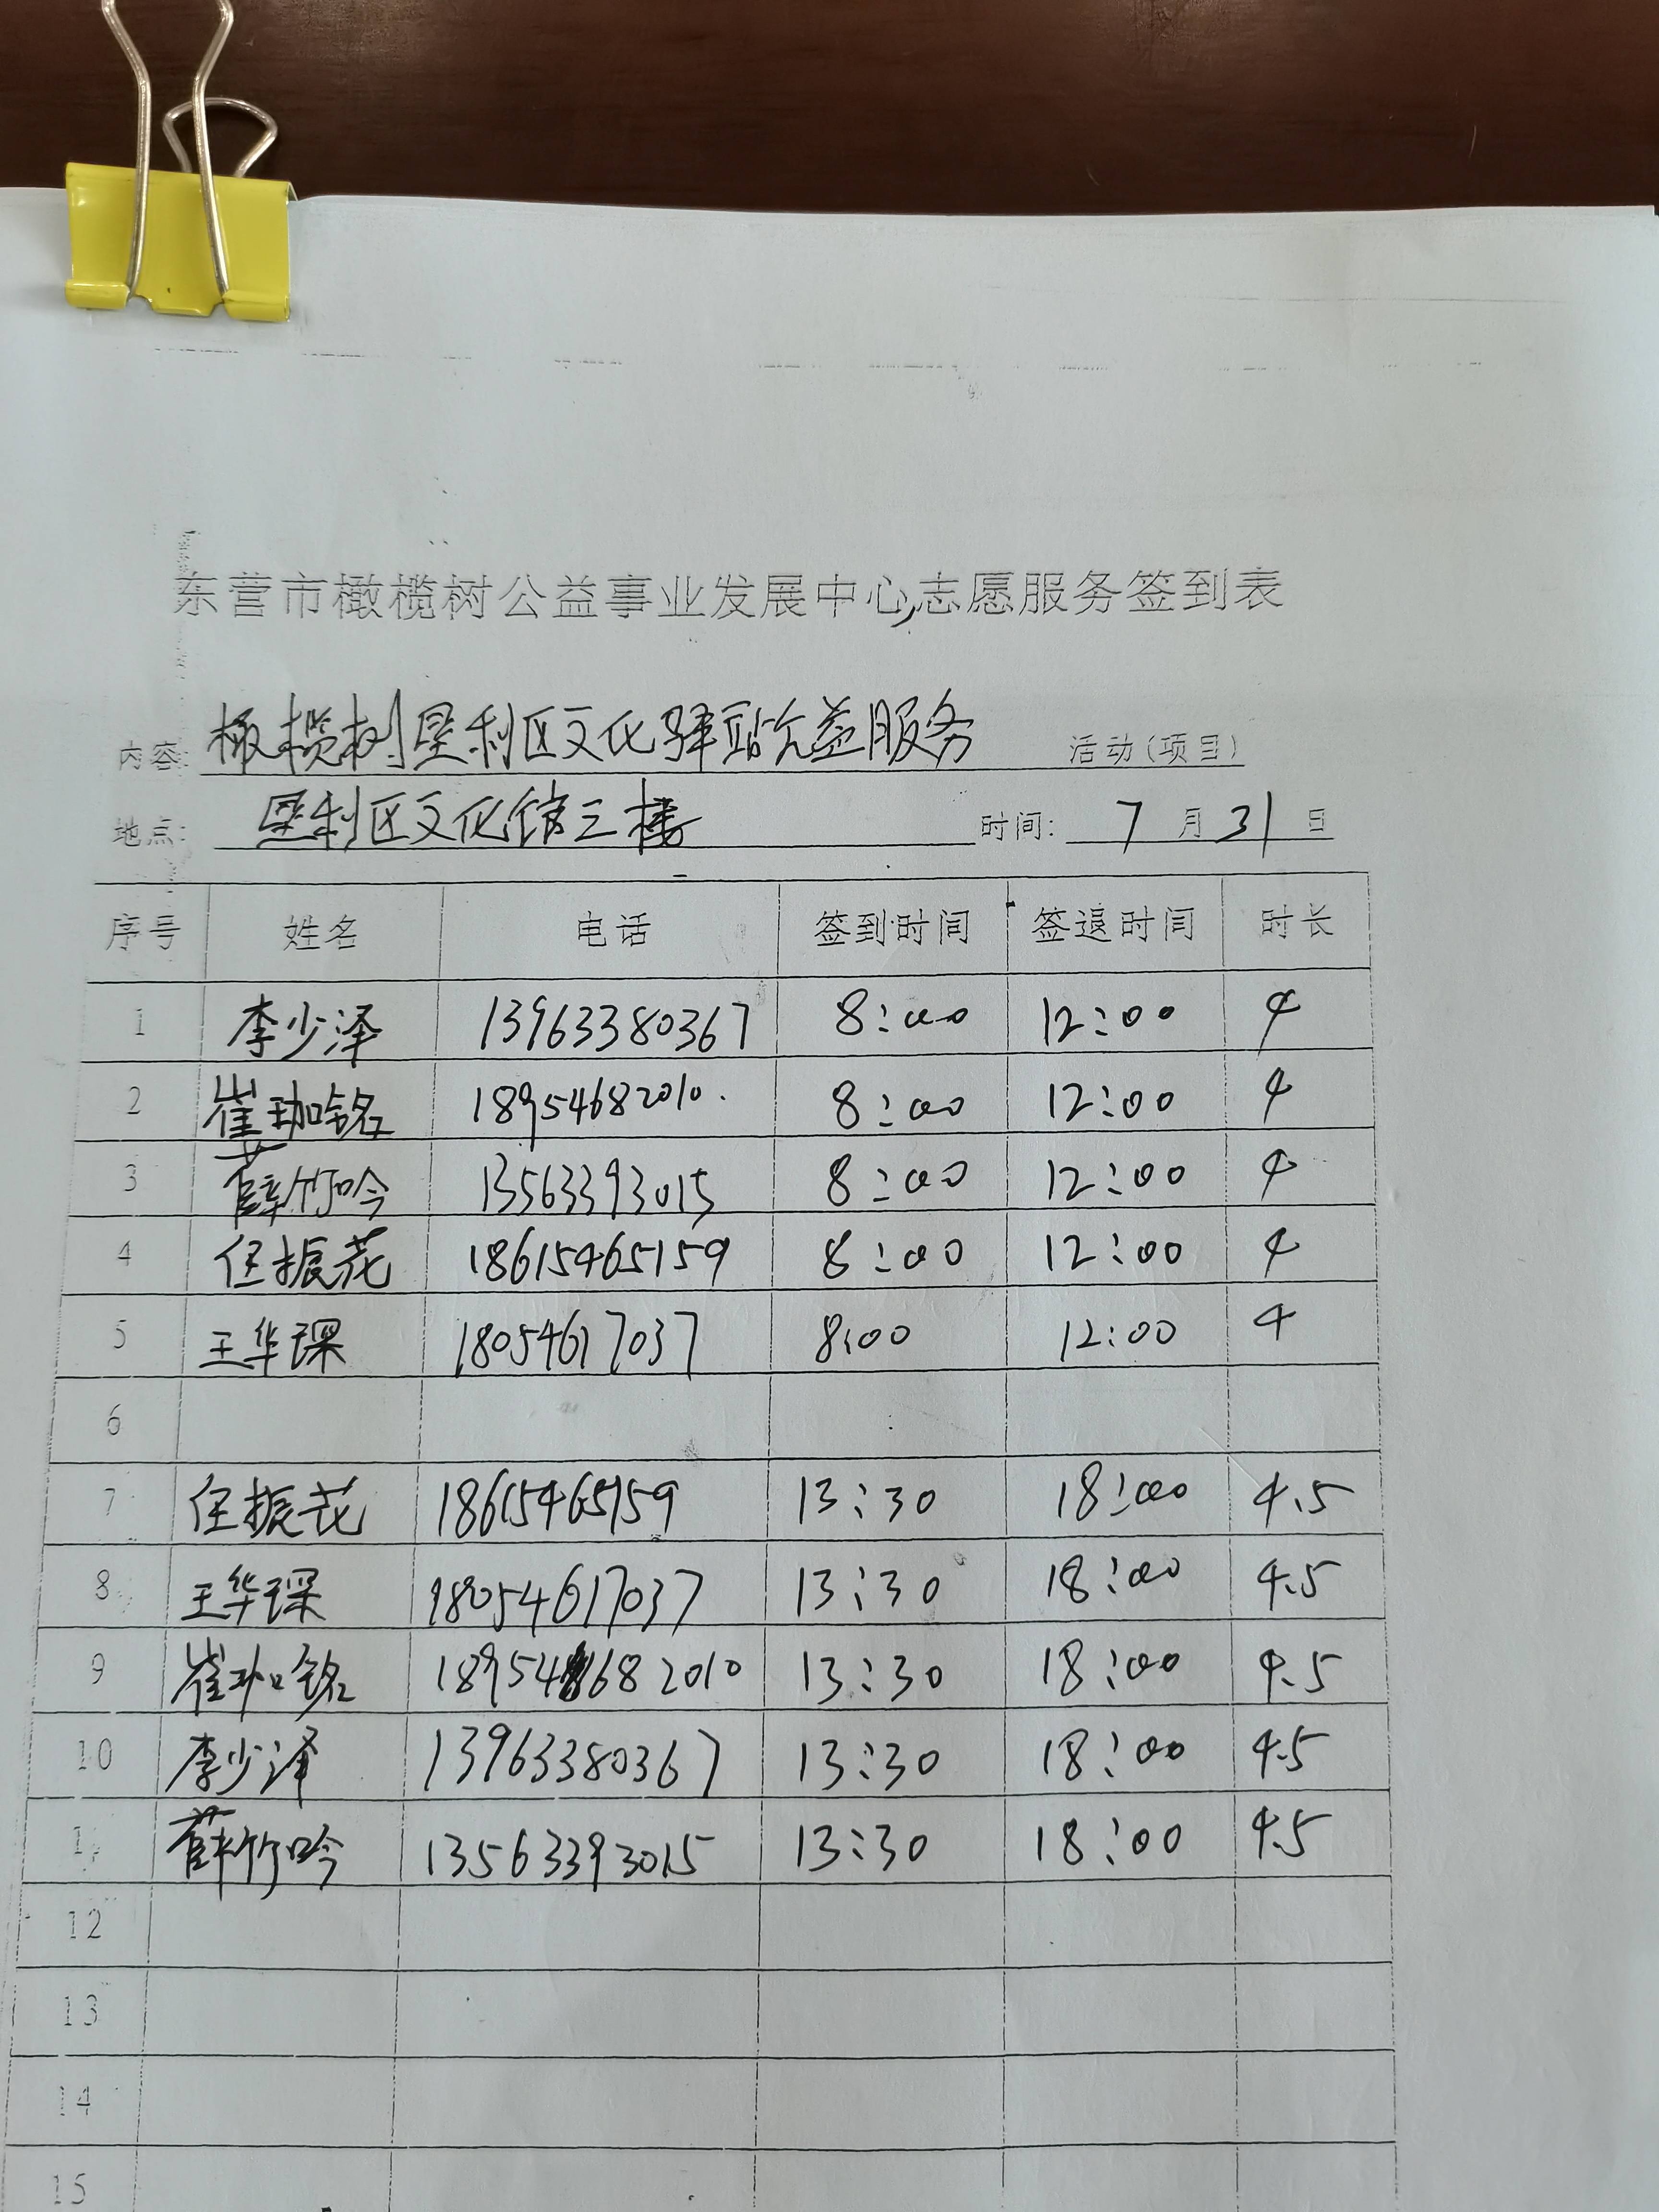 东营市橄榄树公益事业发展中心志愿服务签到表
内容: 橄榄树垦利区文化驿站公益服务 活动(项目)
地点: 垦利区文化馆三楼 时间: 7 月 31 日
序号 姓名 电话 签到时间 签退时间 时长
1 李少泽 13963380367 8:00 12:00 4
2 崔珈铭 18954682010 8:00 12:00 4
3 薛竹吟 13563393015 8:00 12:00 4
4 任振花 18615465159 8:00 12:00 4
5 王华琛 18054617037 8:00 12:00 4
6
7 任振花 18615465159 13:30 18:00 4.5
8 王华琛 18054617037 13:30 18:00 4.5
9 崔珈铭 18954682010 13:30 18:00 4.5
10 李少泽 13963380367 13:30 18:00 4.5
1 薛竹吟 13563393015 13:30 18:00 4.5
12
13
14
15